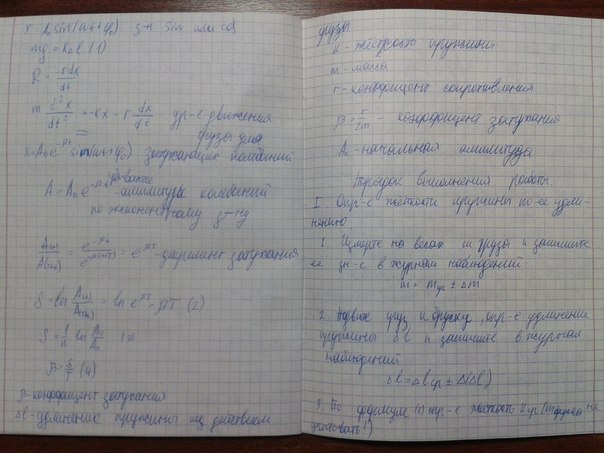 x = A₀ sin(ωt+φ₀) з-н sin или cos
mg = kΔl (1)
R = -rdx/dt
m d²x/dt² = -kx - r dx/dt ур-е движения
x = A₀e^-βt sin(ωt+φ₀) затухающих колебаний
A = A₀e^-βt амплитуда колебаний
по экспонентному з-ну
A(t)/A(t+T) = e^-βt/e^-β(t+T) = e^βT - декремент затухания
δ = ln A(t)/A(t+T) = ln e^βT = βT (2)
δ = 1/n ln A₀/Aₙ (3)
β = δ/T (4)
β - коэффициент затухания
Δl - удлинение пружины под действием
грузы
k - жёсткость пружины
m - масса
r - коэффициент сопротивления
β = r/2m - коэффициент затухания
A₀ - начальная амплитуда
Порядок выполнения работы
I Опр-е жёсткости пружины по её удли-
нению
1. Измерьте на весах m груза и запишите
её зн-е в журнал наблюдений
m = mср ± Δm
2. груз к бруску, опр-е удлинение
пружины Δl и запишите в журнал
наблюдений
Δl = Δlср ± Δ(Δl)
3. По формуле (1) опр-е жёсткость kср (m бруска не
учитывать!)